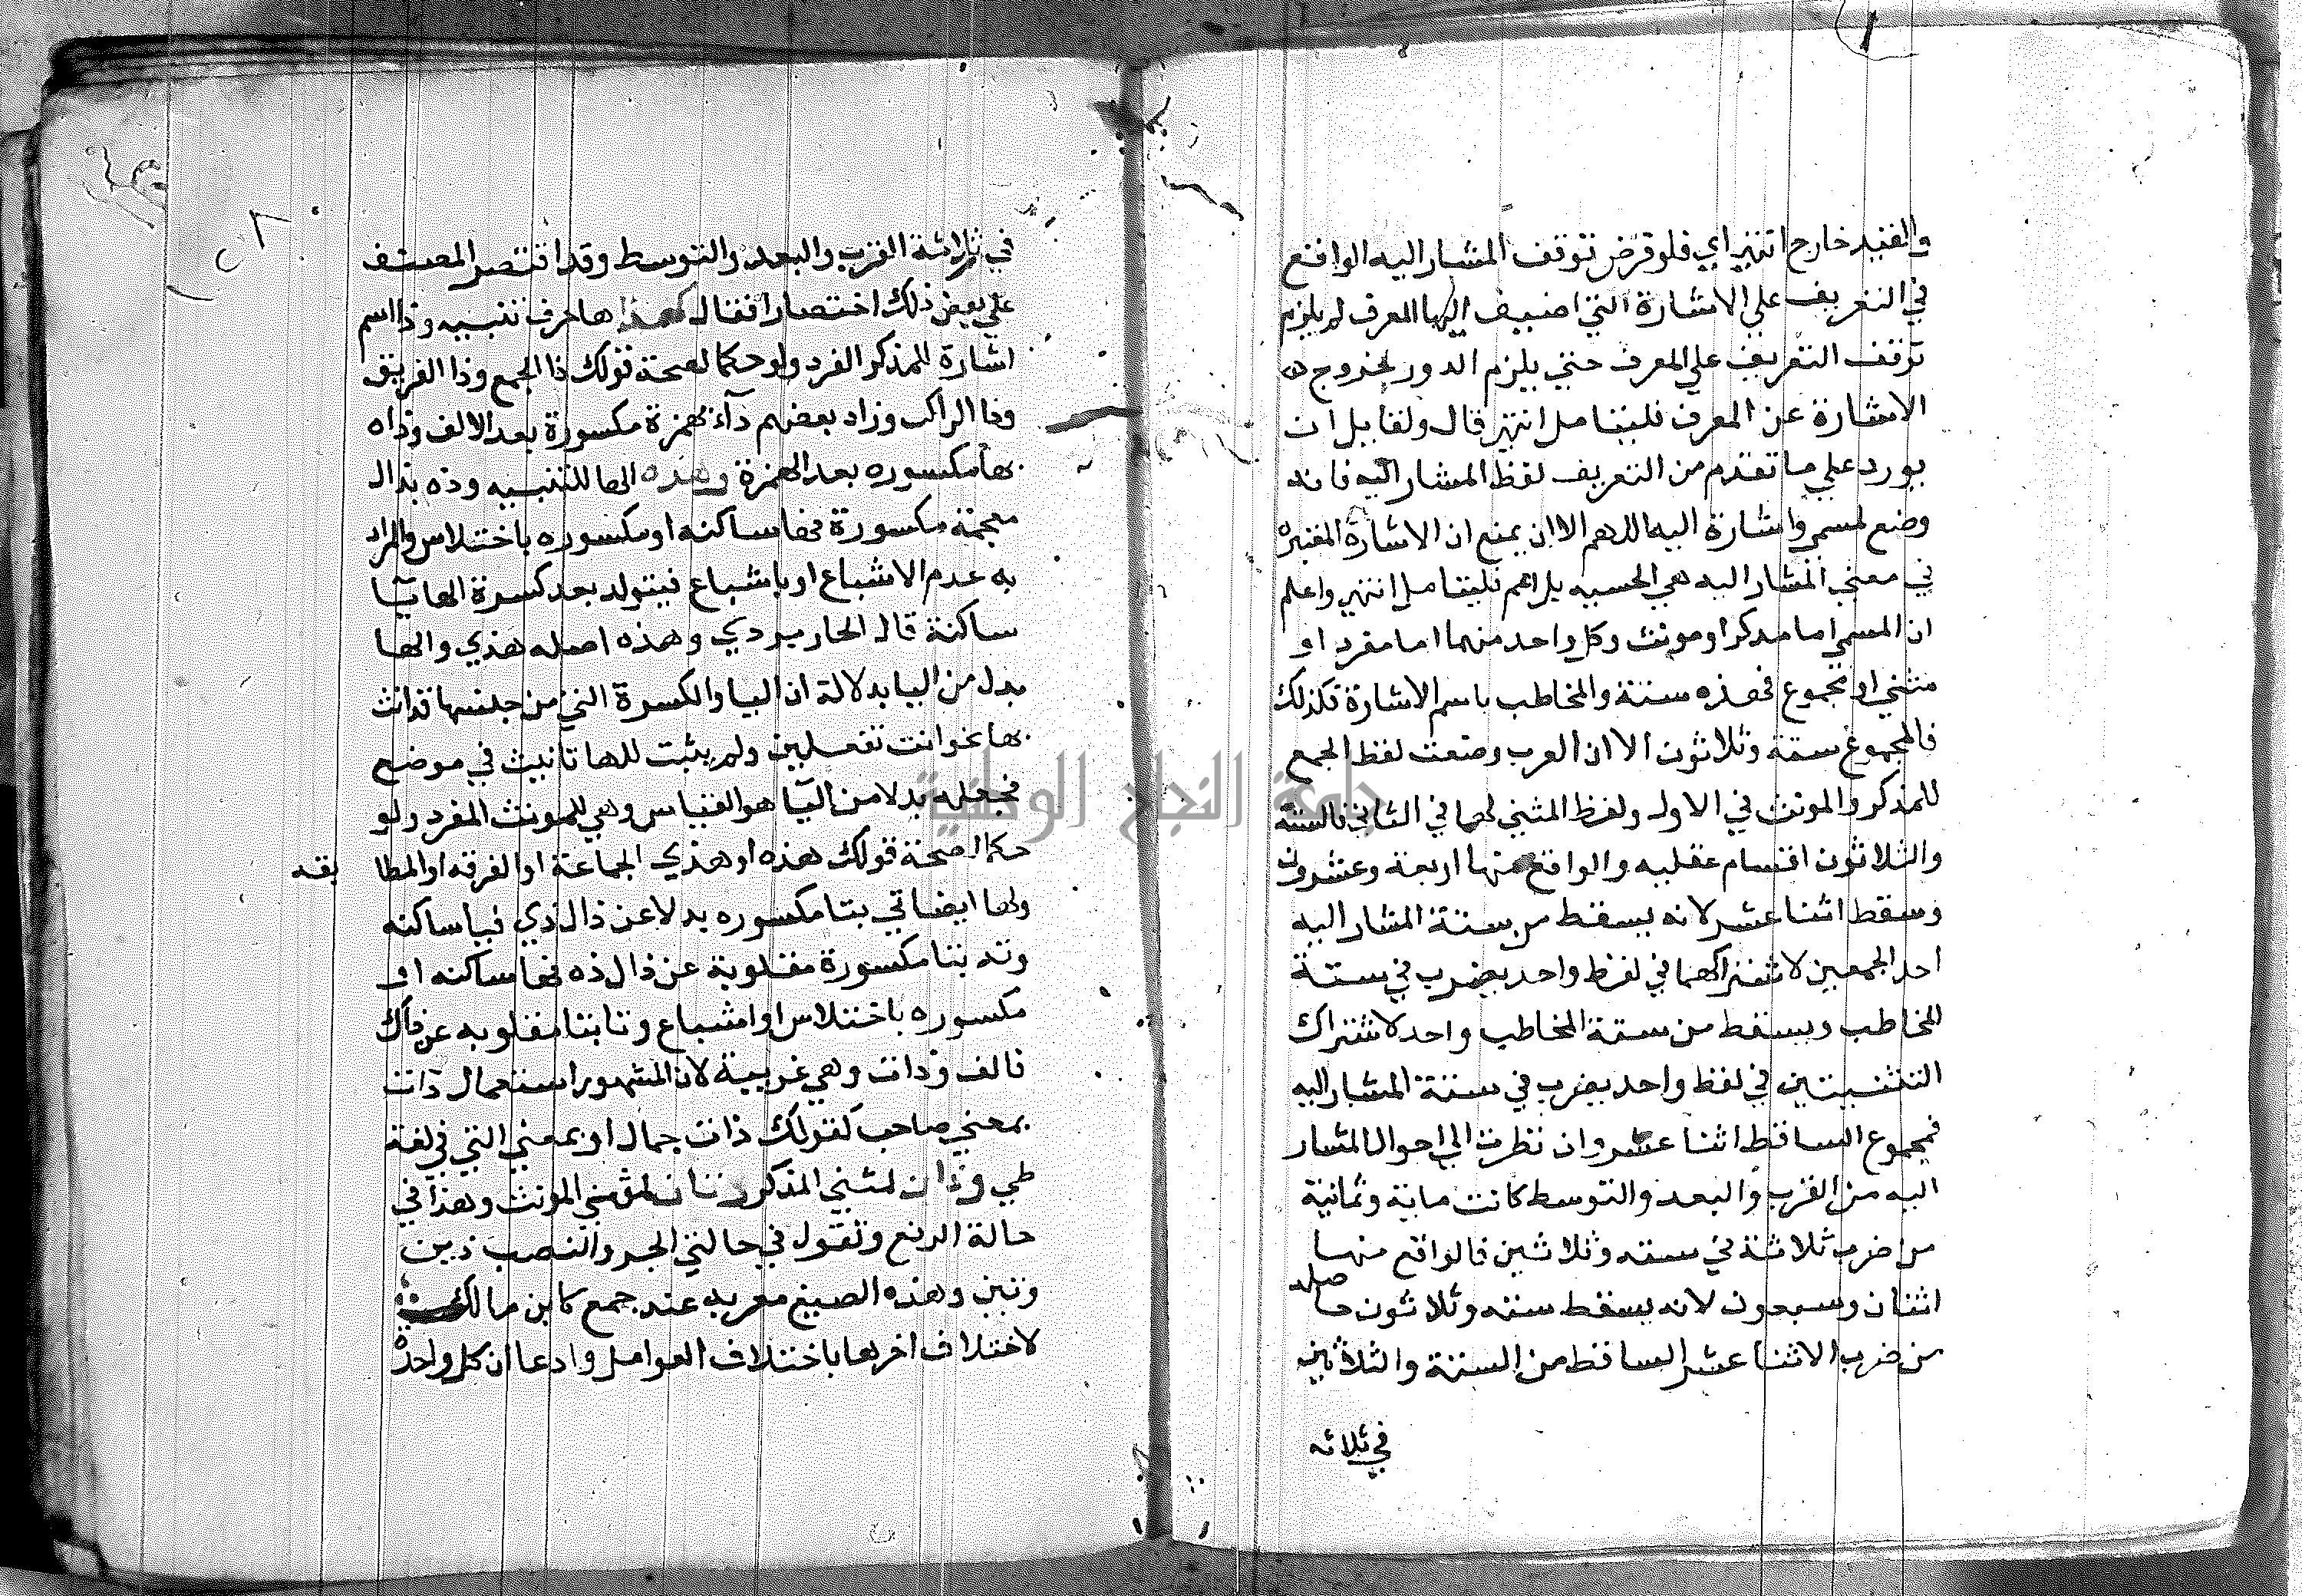 والقيد خارج انتهي اي فلو فرض توقف المشار اليه الواقع
في التعريف علي الاشارة التي اضيف اليها المعرف لم يلزم
توقف التعريف علي المعرف حتي يلزم الدور لخروج
الاشارة عن المعرف فليتامل انتهي قال ولقايل ان
يورد علي ما تقدم من التعريف لفظ المشار اليه فانه
وضع لمسمي واشارة اليه اللهم الا ان يمنع ان الاشارة المعتبرة
في معني المشار اليه هي الحسيه بل اعم فليتامل انتهي واعلم
ان المسمي اما مذكر او مونث وكل واحد منهما اما مفرد او
مثني او مجموع فهذه ستة والمخاطب باسم الاشارة كذلك
فالمجموع ستة وثلاثون الا ان العرب وضعت لفظ الجمع
للمذكر والمونث في الاول ولفظ المثني لهما في الثاني فالستة
والثلاثون اقسام عقليه والواقع منها اربعة وعشرون
وسقط اثنا عشر لانه يسقط من ستة المشار اليه
احد الجمعين لاشتراكهما في لفظ واحد يضرب في ستة
المخاطب ويسقط من ستة المخاطب واحد لاشتراك
التثنيتين في لفظ واحد يضرب في ستة المشار اليه
فمجموع الساقط اثنا عشر وان نظرت الي احوال المشار
اليه من القرب والبعد والتوسط كانت ماية وثمانية
من ضرب ثلاثة في سته وثلاثين فالواقع منها
اثنان وسبعون لانه يسقط سته وثلاثون حاصله
من ضرب الاثنا عشر الساقط من الستة والثلاثين
في ثلاثه
في ثلاثة القرب والبعد والتوسط وقد اقتصر المصنف
علي بعض ذلك اختصارا فقال كهذا ها حرف تنبيه وذا اسم
اشارة للمذكر المفرد ولو حكما لصحة قولك ذا الجمع وذا الفريق
وذا الراكب وزاد بعضهم ذآء بهمزة مكسورة بعد الالف وذاه
بها مكسوره بعد الهمزة وهذه الها للتنبيه وذه بذال
معجمة مكسورة فها ساكنه او مكسوره باختلاس والمراد
به عدم الاشباع او باشباع فيتولد بعد كسرة الها يآ
ساكنة قال الجاربردي وهذه اصله هذي والها
بدل من اليا بدلالة ان اليا والكسرة التي من جنسها قد انث
بها نحو انت تفعلين ولم يثبت للها تانيث في موضع
فجعله بدلا من اليآ هو القياس وهي للمونث المفرد ولو
حكما لصحة قولك هذه او هذي الجماعة او الفرقه او الطا
يفه
ولها ايضا تي بتا مكسوره بدلا عن ذال ذي فيا ساكنه
وته بتا مكسورة مقلوبة عن ذال ذه فها ساكنه او
مكسوره باختلاس او اشباع وتا بتا مقلوبه عن ذاك
فالف وذات وهي غريبة لان المشهور استعمال ذات
بمعني صاحب كقولك ذات جمال او بمعني التي في لغة
طي وذان لمثني المذكر وتان لمثني المونث وهذا في
حالة الرفع وتقول في حالتي الجر والنصب ذين
وتين وهذه الصيغ معربه عند جمع كابن مالك
لاختلاف اخرها باختلاف العوامل وادعا ان كل واحدة
جامعة النجاح الوطنية